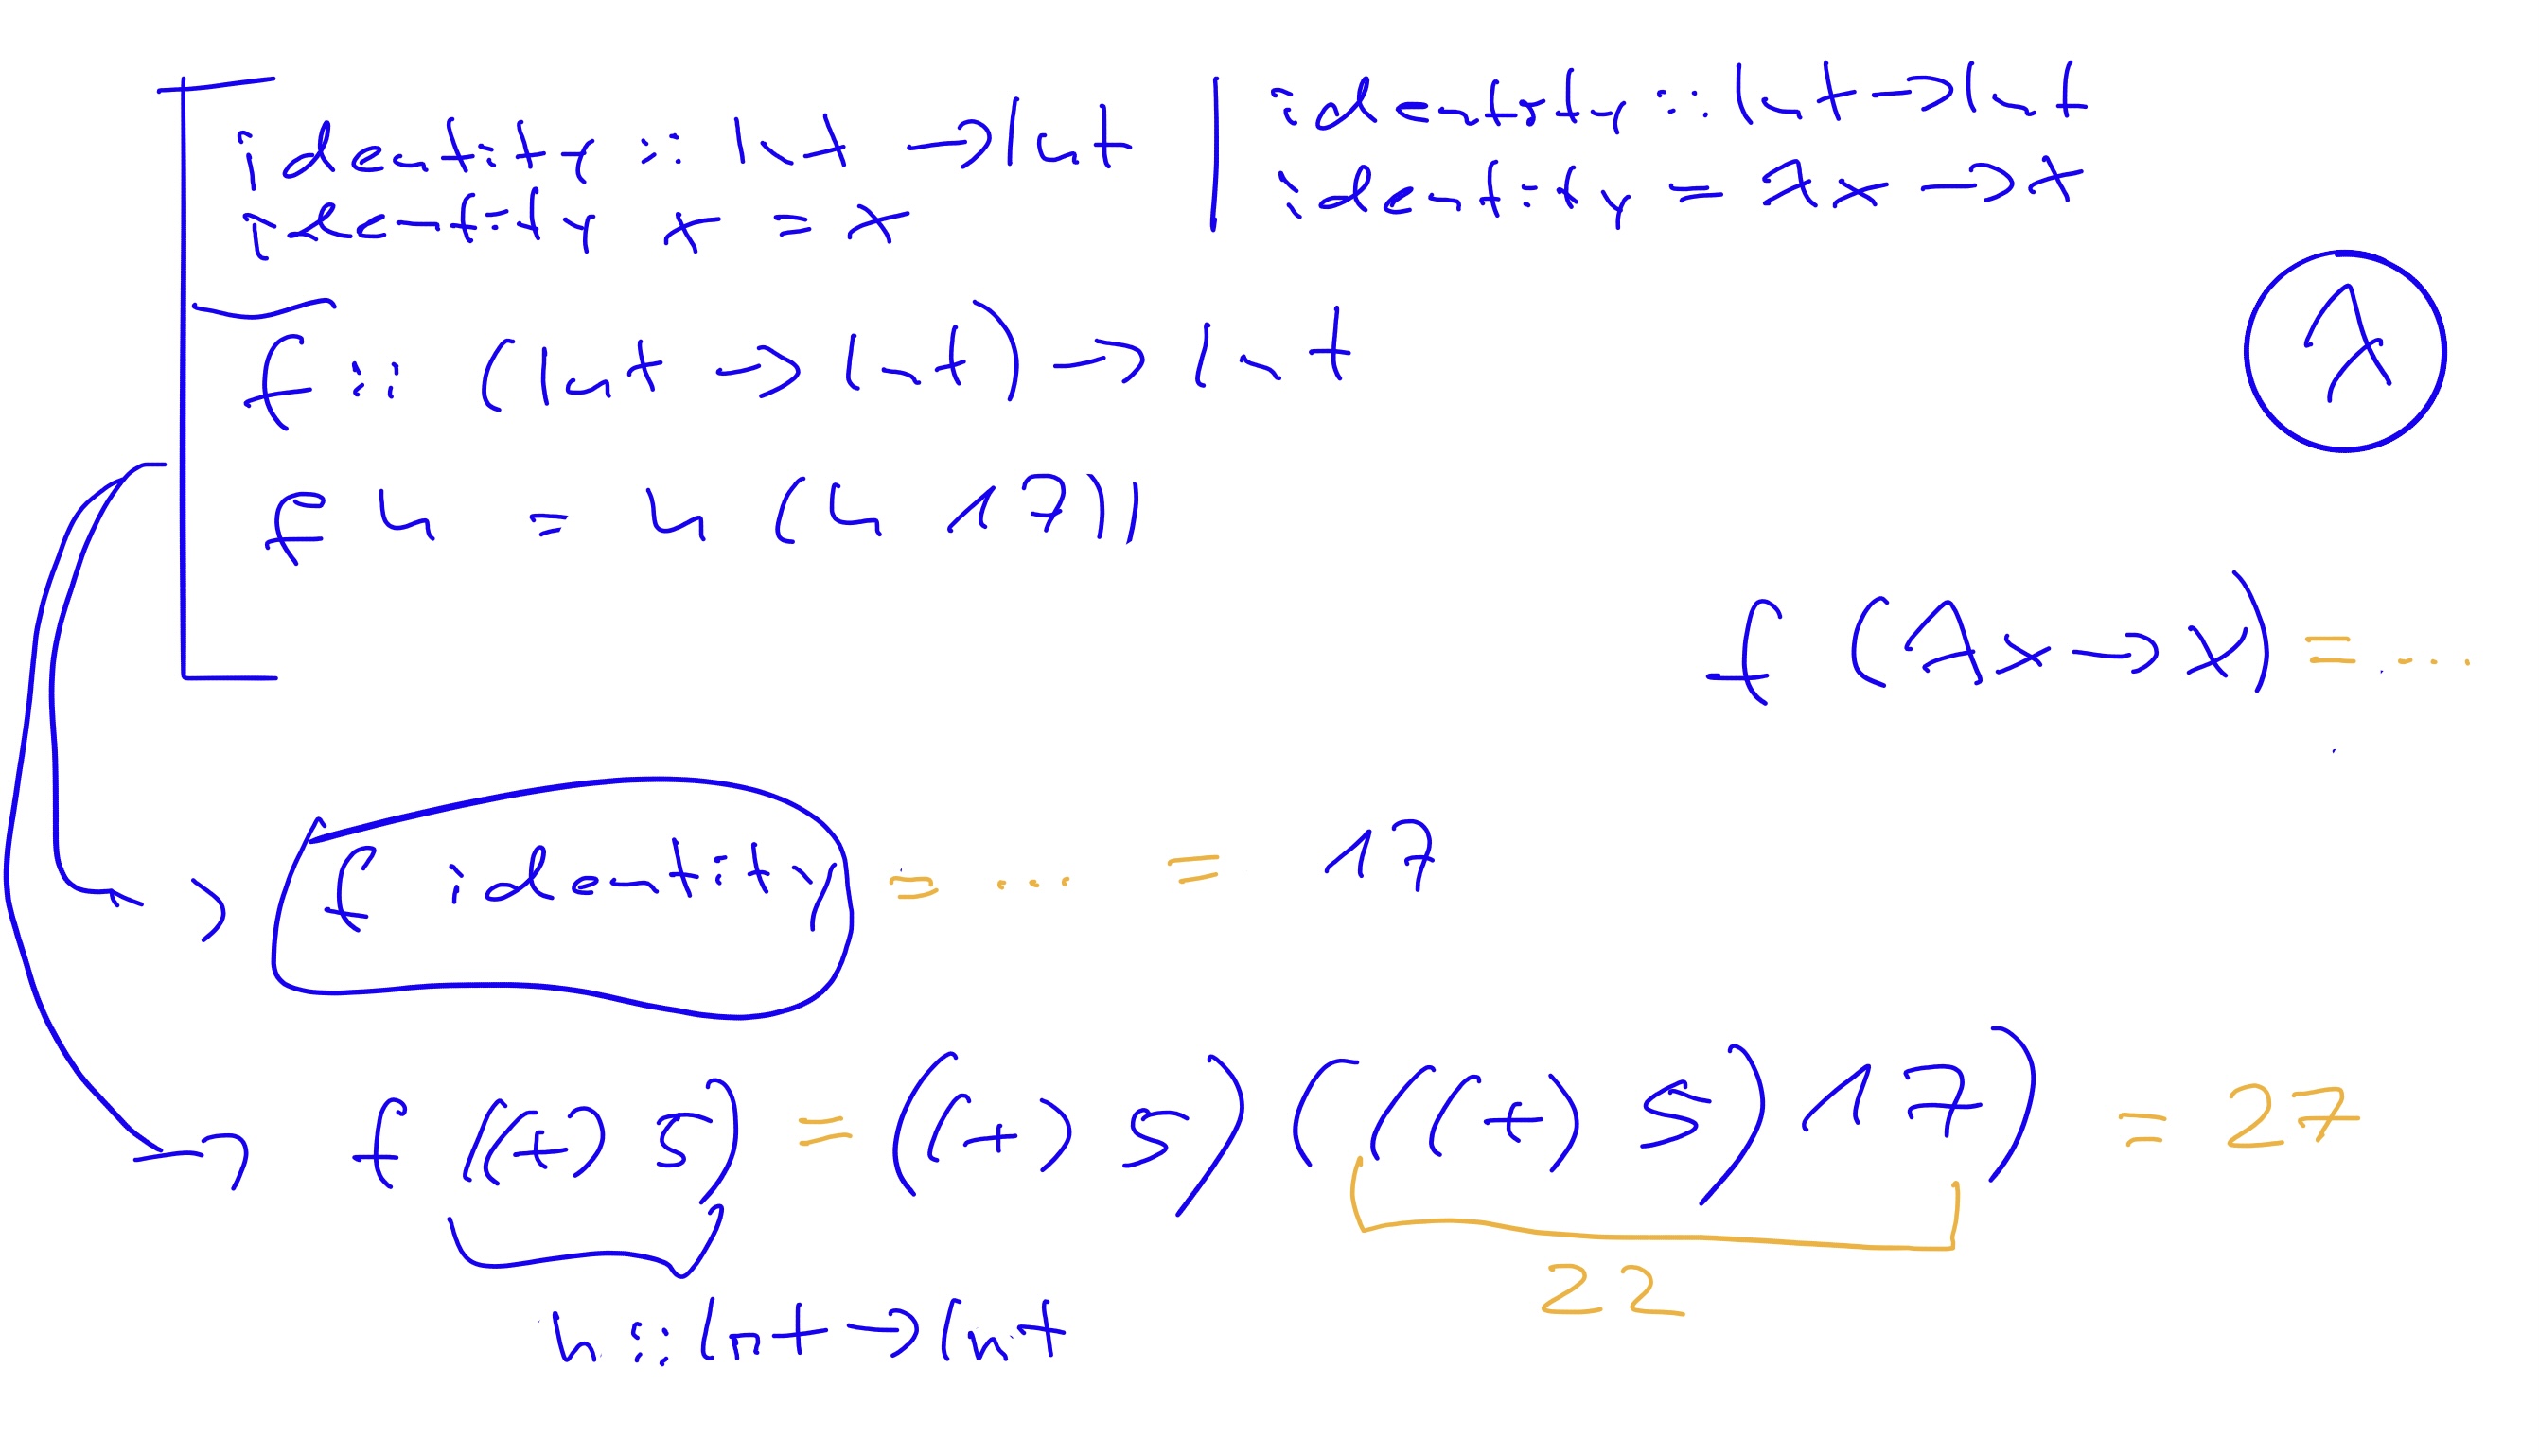 identity :: Int → Int | identity :: Int → Int
identity x = x | identity = λx → x
f :: (Int → Int) → Int
λ
f h = h (h 17))
f (λx → x) = ...
f identity = ... = 17
f ((+) 5) = ((+) 5) ((((+) 5) 17) = 27
22
h :: Int → Int